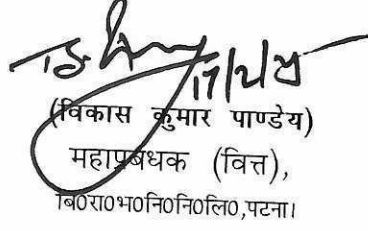 17/2/25
(विकास कुमार पाण्डेय)
महाप्रबंधक (वित्त),
बि0रा0भ0नि0नि0लि0,पटना।